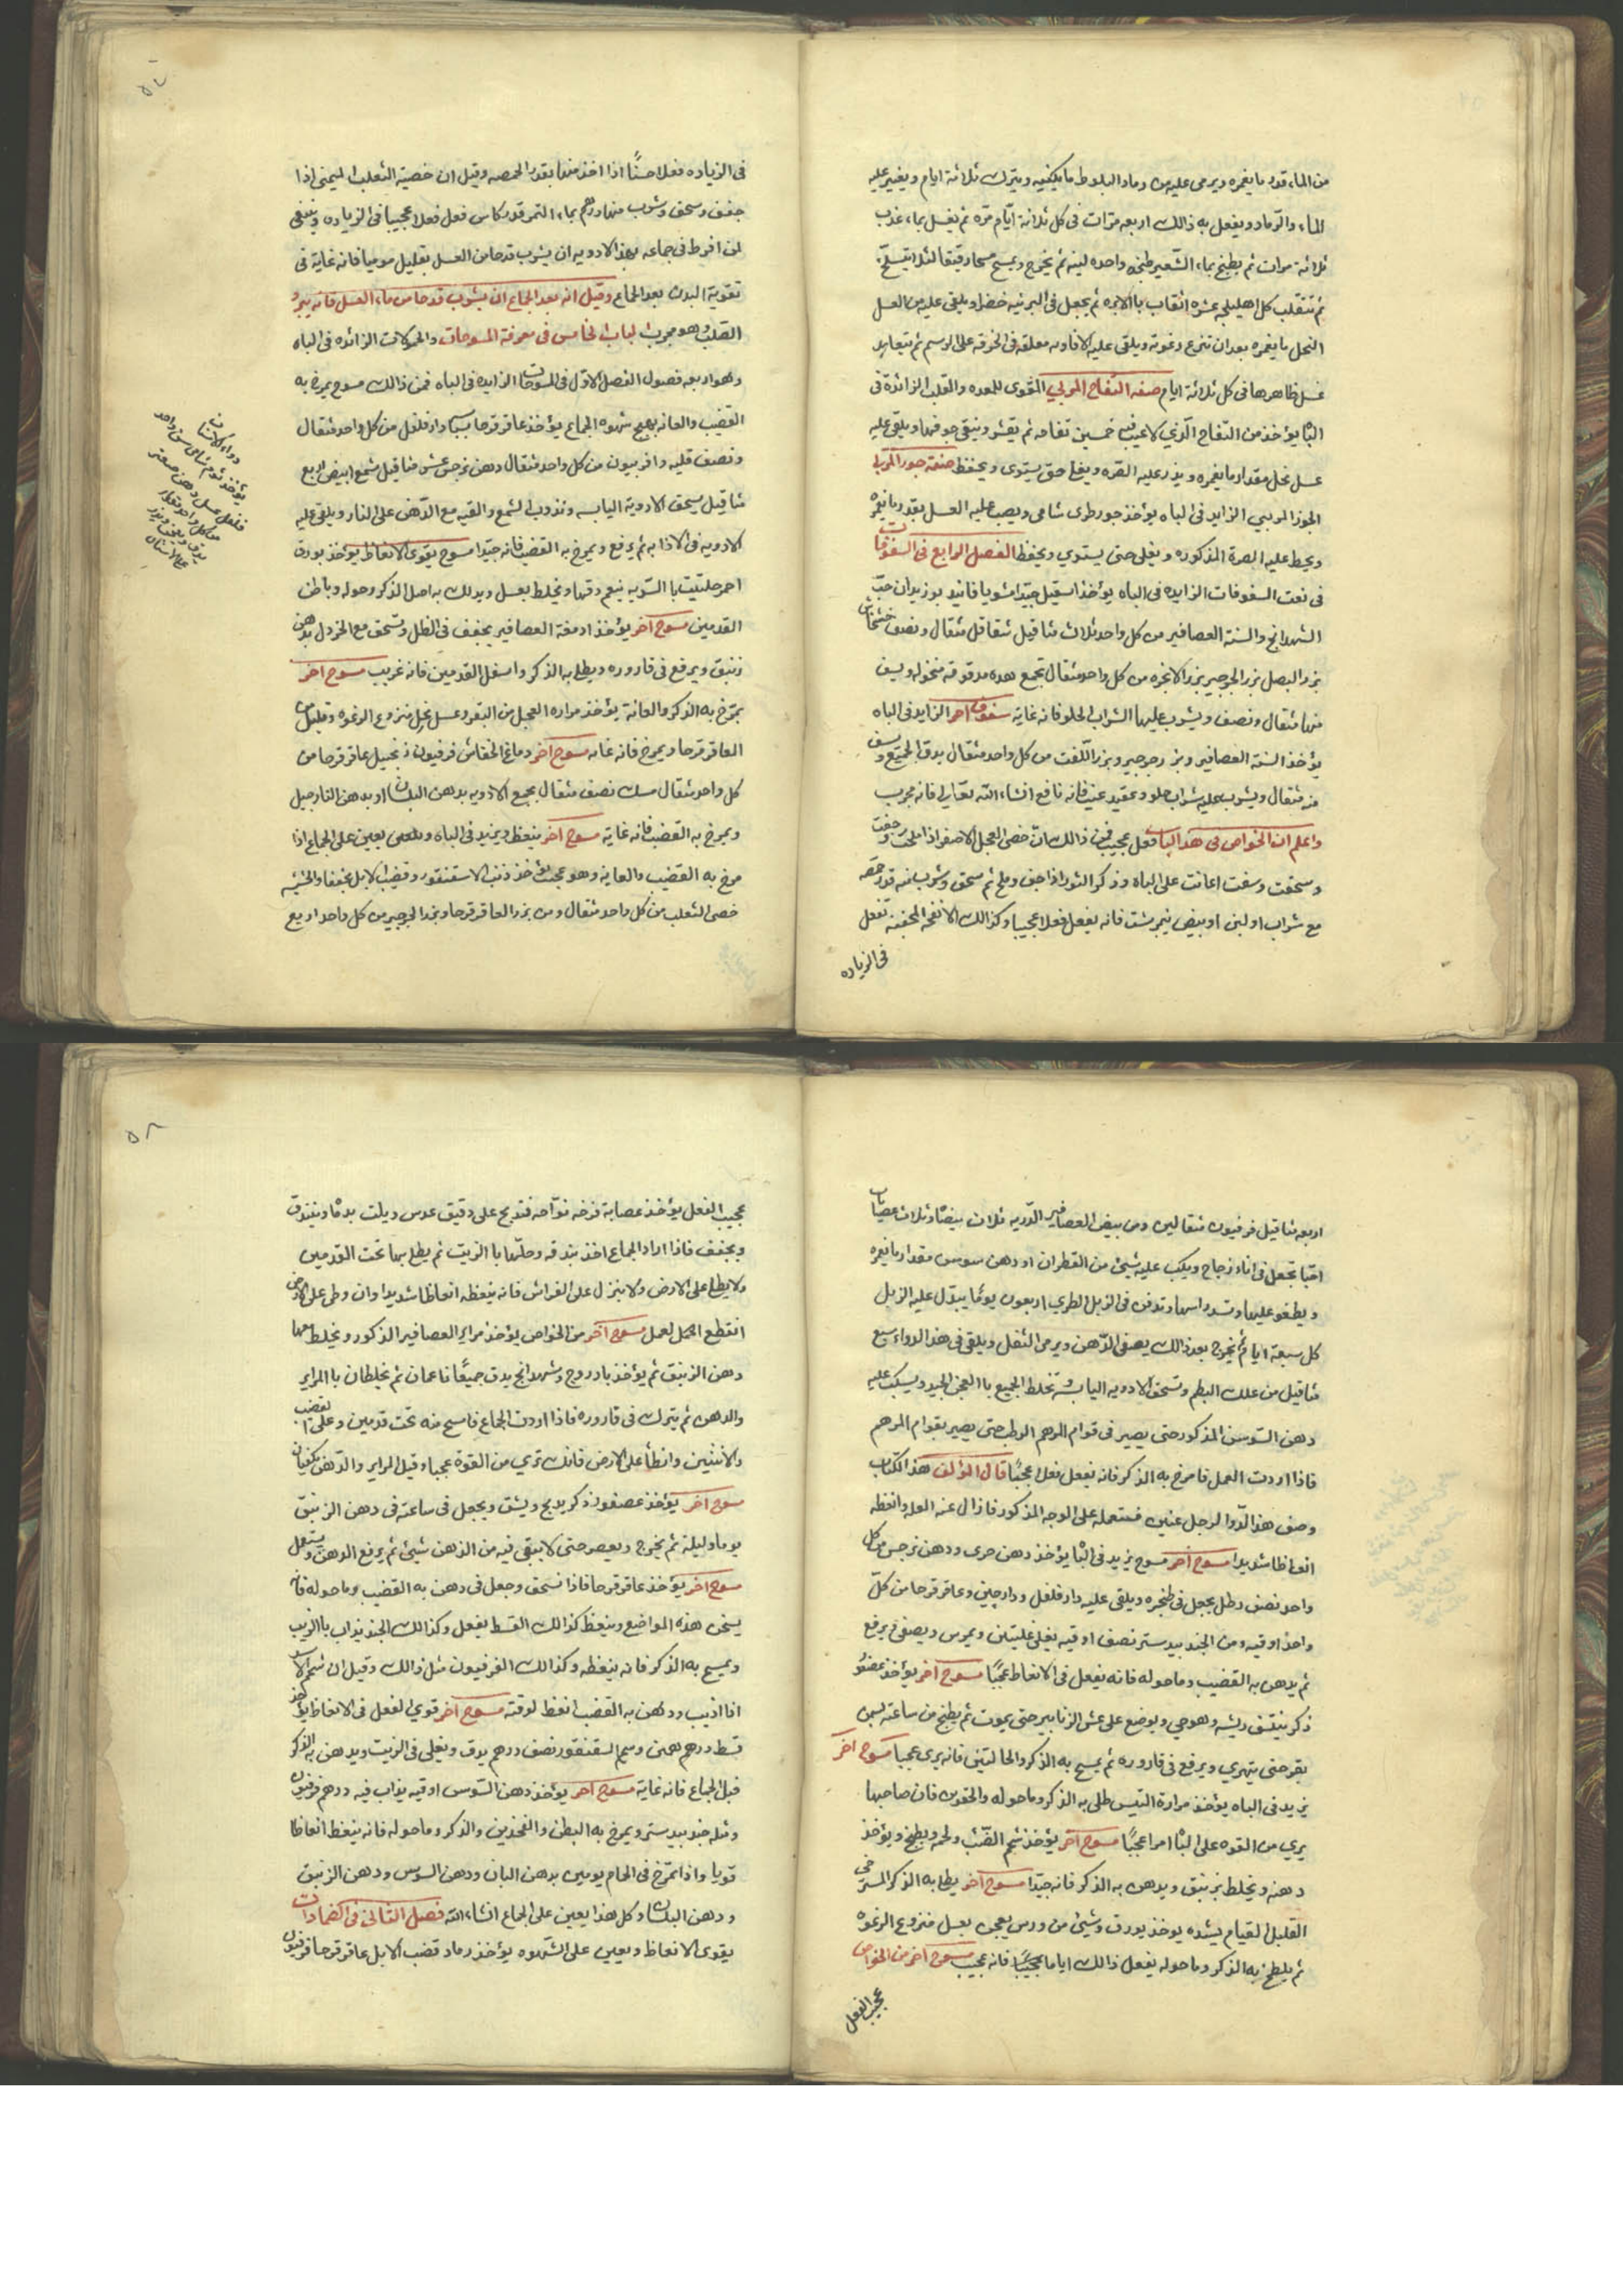 من الماء قدر ما يغمره ويرمى عليه من رماد البلوط ما يكفيه ويترك ثلاثة ايام ويغير عليه
الماء والرماد ويفعل به ذالك اربعه مرات فى كل ثلاثة ايّام مرّه ثم يغسل بماء عذب
ثلاثة مرات ثم يطبخ بماء الشعير طبخه واحده لينه ثم يخرج ويمسح مسحا رقيقا لئلا يتسلخ
ثم تثقب كل اهليلجه عشره اثقاب بالابره ثم يجعل فى البرنيه خضرا ويلقى عليه من العسل
النحل ما يغمره بعد ان تنزع رغوته ويلقى عليه الافاويه معلقه فى الخرقه على الرسم ثم يتعاهد
غسل ظاهرها فى كل ثلاثة ايام صفه التفاح المربي المقوى للمعده والقلب الزائدة فى
الباه يؤخذ من التفاح الّذي لا عيب فيه خمسين تفاحه ثم يقشر وينقى جوفها ويلقى عليه
عسل نحل مقدار ما يغمره ويذر عليه الصره ويغلى حتى يستوى ويحفظ صفة جوز المربا
الجوز المربي الزايد فى الباه يؤخذ جوز طرى شامى ويصب عليه العسل بقدر ما يغمره
ويحط عليه الصرة المذكوره ويغلى حتى يستوي ويحفظ الفصل الرابع فى السفوفات
فى نعت السفوفات الزايده فى الباه يؤخذ اسقيل جيّدا مشويا فانيد بوزيدان حبّ
الشهدانج والسنة العصافير من كل واحد ثلاث مثاقيل شقاقل مثقال ونصف خشخاش
بزر البصل بزر الجرجير بزر الانجره من كل واحد مثقال تجمع هذه مدقوقه منخوله ويسف
منها مثقال ونصف ويشرب عليها الشراب الحلو فانه غاية سفوف اخر الزايد فى الباه
يؤخذ السنة العصافير وبزر جرجير وبزر اللفت من كل واحد مثقال يدق الجميع ويسف
منه مثقال ويشرب عليه شراب حلو وعقيد عنب فانه نافع انشاء اللّه تعالى فانه مجرب
واعلم ان الخواص فى هذ الباب فعل عجيب فمن ذالك انّ خصى العجل الاصفر اذا ملحت وجففت
وسحقت وسفت اعانت على الباه وذكر الثور اذا جفف وملح ثم سحق وشرب منه قدر حمصه
مع شراب او لبن او بيض نيمرشت فانه يفعل فعلا عجيبا وكذالك الانفحه المجففه تفعل
فى الزياده
٥٧
فى الزياده فعلا حسنًا اذا اخذ منها بقدر الحمصه وقيل ان خصية الثعلب اليمنى اذا
جفف وسحق وشرب منها درهم بماء التمر قدر كاس فعل فعلا عجيبا فى الزياده وينبغى
لمن افرط فى جماعه بهذ الادويه ان يشرب قدحا من العسل بقليل موميا فانه غاية فى
تقوية البدن بعد الجماع وقيل انه بعد الجماع ان يشرب قدحا من ماء العسل فانه يبرد
القلب وهو مجرب الباب الخامس فى معرفة المسوحات والحمولات الزائده فى الباه
وهو اربعه فصول الفصل الاوّل فى المسوحات الزايده فى الباه فمن ذالك مسوح يمرخ به
القضيب والعانه يهيج شهوه الجماع يؤخذ عاقرقرحا بسباسه دارفلفل من كل واحد مثقال
ونصف قليه وافربيون من كل واحد مثقال دهن نرجس عشر مثاقيل شمع ابيض اربع
مثاقيل يسحق الادوية اليابسه وتذوب الشمع والقيه مع الدّهن على النار ويلقى عليه
الادويه فى الاذابه ثم يرفع ويمرخ به القضيب فانه جيّدا مسوح يقوى الانعاظ يؤخذ بورق
احمر حلتيت بالسّويه ينعم دقها ويخلط بعسل ويدلك به اصل الذكر وحوله وباطن
القدمين مسوح اخر يؤخذ ادمغة العصافير يجفف فى الظل وتسحق مع الخردل بدهن
زنبق ويرفع فى قاروره ويطلى به الذكر واسفل القدمين فانه غريب مسوح اخر
يمرّخ به الذكر والعانة يؤخذ مراره العجل من البقر وعسل نحل منزوع الرغوه وقليل من
العاقرقرحا ويمرخ فانه غايه مسوح اخر دماغ الخفاش فرفيون زنجبيل عاقرقرحا من
كل واحد مثقال مسك نصف مثقال يجمع الادويه بدهن البلسان او بدهن النارجيل
ويمرخ به القضيب فانه غاية مسوح اخر ينعظ ويزيد فى الباه ويعين على الجماع اذا
مرخ به القضيب والعانه وهو عجيب يؤخذ ذنب الاسقنقور وقضيب الابل مجففا واخثيه
خصى الثعلب من كل واحد مثقال ومن بزر العاقرقرحا وبزر الجرجير من كل واحد اربع
دواء الاسنان
يؤخذ ثوم شامى سن واحد
فلفل عسل دهن صعتر
من كل واحد مقدار
على الاسنان
اربعه مثاقيل فرفيون مثقالين ومن بيض العصافير الدّريه ثلاث بيضًا وثلاث عصيّات
اقبّا تجعل فى اناء زجاج ويكب عليه شيئ من القطران او دهن سوسن مقدار ما يغمره
ويطفو عليها وتسد راسها وتدفن فى الزبل الطري اربعون يومًا يبدّل عليه الزبل
كل سبعة ايام ثم يخرج بعد ذالك يصفى الدّهن ويرمى الثفل ويلقى فى هذ الدواء سبع
مثاقيل من علك البطم وتسحق الادويه اليابسه وتخلط الجميع بالعجن الجيد ويسكب عليه
دهن السّوسن المذكور حتى يصير فى قوام المرهم الرطب حتى يصير بقوام المرهم
فاذا اردت العمل فامرخ به الذكر فانه يفعل فعلا عجيبًا قال المؤلف هذ الكتاب
وصف هذ الدّوا لرجل عنين فستعمله على الوجه المذكور فازال عنه العله وانعظه
انعاظا شديدا مسوح اخر مسوح يزيد فى الباه يؤخذ دهن خرى ودهن نرجس من كل
واحد نصف رطل يجعل فى طنجره ويلقى عليه دارفلفل ودارچينى وعاقرقرحا من كلّ
واحد اوقيه ومن الجندبيدستر نصف اوقيه يغلى غليتين ويمرس ويصفى ويرفع
ثم يدهن به القضيب وما حوله فانه يفعل فى الانعاظ عجبًا مسوح اخر يؤخذ عصفور
ذكر ينتف ريشه وهو حي ويوضع على عش الزنابير حتى يموت ثم يطبخ من ساعته بسمن
بقر حتى يتهري ويرفع فى قاروره ثم يمسح به الذكر والحالبين فانه يرى عجبا مسوح اخر
يزيد فى الباه يؤخذ مرارة التيس طلى به الذكر وما حوله والحقوين فان صاحبها
يري من القوه على الباه امرا عجبًا مسوح اخر يؤخذ شحم الضّب ولحمه ويطبخ ويؤخذ
دهنه ويخلط بزنبق ويدهن به الذكر فانه جيّدا مسوح اخر يطلى به الذكر المسترخى
القليل القيام يشده يوخذ بورق وشيئ من ورس يعجن بعسل منزوع الرغوه
ثم يلطخ به الذكر وما حوله يفعل ذالك اياما عجيبًا فانه عجيب مسوح اخر من الخواص
عجيب الفعل
٥٨
عجيب الفعل يؤخذ عصابة فرخه نوّاحه فتذبح على دقيق عدس ويلت بدمها ويبندق
ويجفف فاذا اراد الجماع اخذ بندقه وحلّها بالزيت ثم يطلى بها تحت القدمين
ولا يطا على الارض ولا ينزل على الفراش فانه ينعظه انعاظا شديدا وان وطى على الارض
انقطع العمل مسوح اخر من الخواص يؤخذ مراير العصافير الذكور ويخلط معها
دهن الزنبق ثم يؤخذ بادروج وشهدانج يدق جميعًا ناعمان ثم يخلطان بالمراير
والدهن ثم يترك فى قاروره فاذا اردت الجماع فامسح منه تحت قدمين وعلى القضيب
والانثيين وانطأ على الارض فانك ترى من القوة عجبا وقيل المراير والدّهن يكفيان
مسوح اخر يؤخذ عصفور ذكر يذبح ويشق ويجعل فى ساعته فى دهن الزنبق
يوما وليلة ثم يخرج ويعصر حتى لا يبقى فيه من الدّهن شيئ ثم يرفع الدهن ويستعمل
مسوح اخر يؤخذ عاقرقرحا فاذا سحق وجعل فى دهن به القضيب وما حوله فانه
يسخن هذه المواضع وينعظ كذالك القسط يفعل وكذالك الجند يذاب بالزيت
ويمسح به الذكر فانه ينعظه وكذالك الفرفيون مثل ذالك وقيل ان شحم الاسد
اذا اذيب ودهن به القضيب انعظ لوقته مسوح اخر قوي الفعل فى الانعاظ يؤخذ
قسط درهم بهمن وشحم السقنقور نصف درهم يدق ويغلى فى الزيت ويدهن به الذكر
قبل الجماع فانه غاية مسوح اخر يؤخذ دهن السّوسن اوقيه يذاب فيه درهم فرفيون
ومثله جندبيدستر ويمرخ به البطن والفخذين والذكر وما حوله فانه ينعظ انعاظا
قويا واذا تمرّخ فى الحمام يومين بدهن البان ودهن السوسن ودهن الزنبق
ودهن البلسان وكل هذا يعين على الجماع انشاء اللّه فصل الثانى فى الضمادات
يقوى الانعاظ ويعين على الشهوه يؤخذ رماد قضيب الابل عاقرقرحا فرفيون